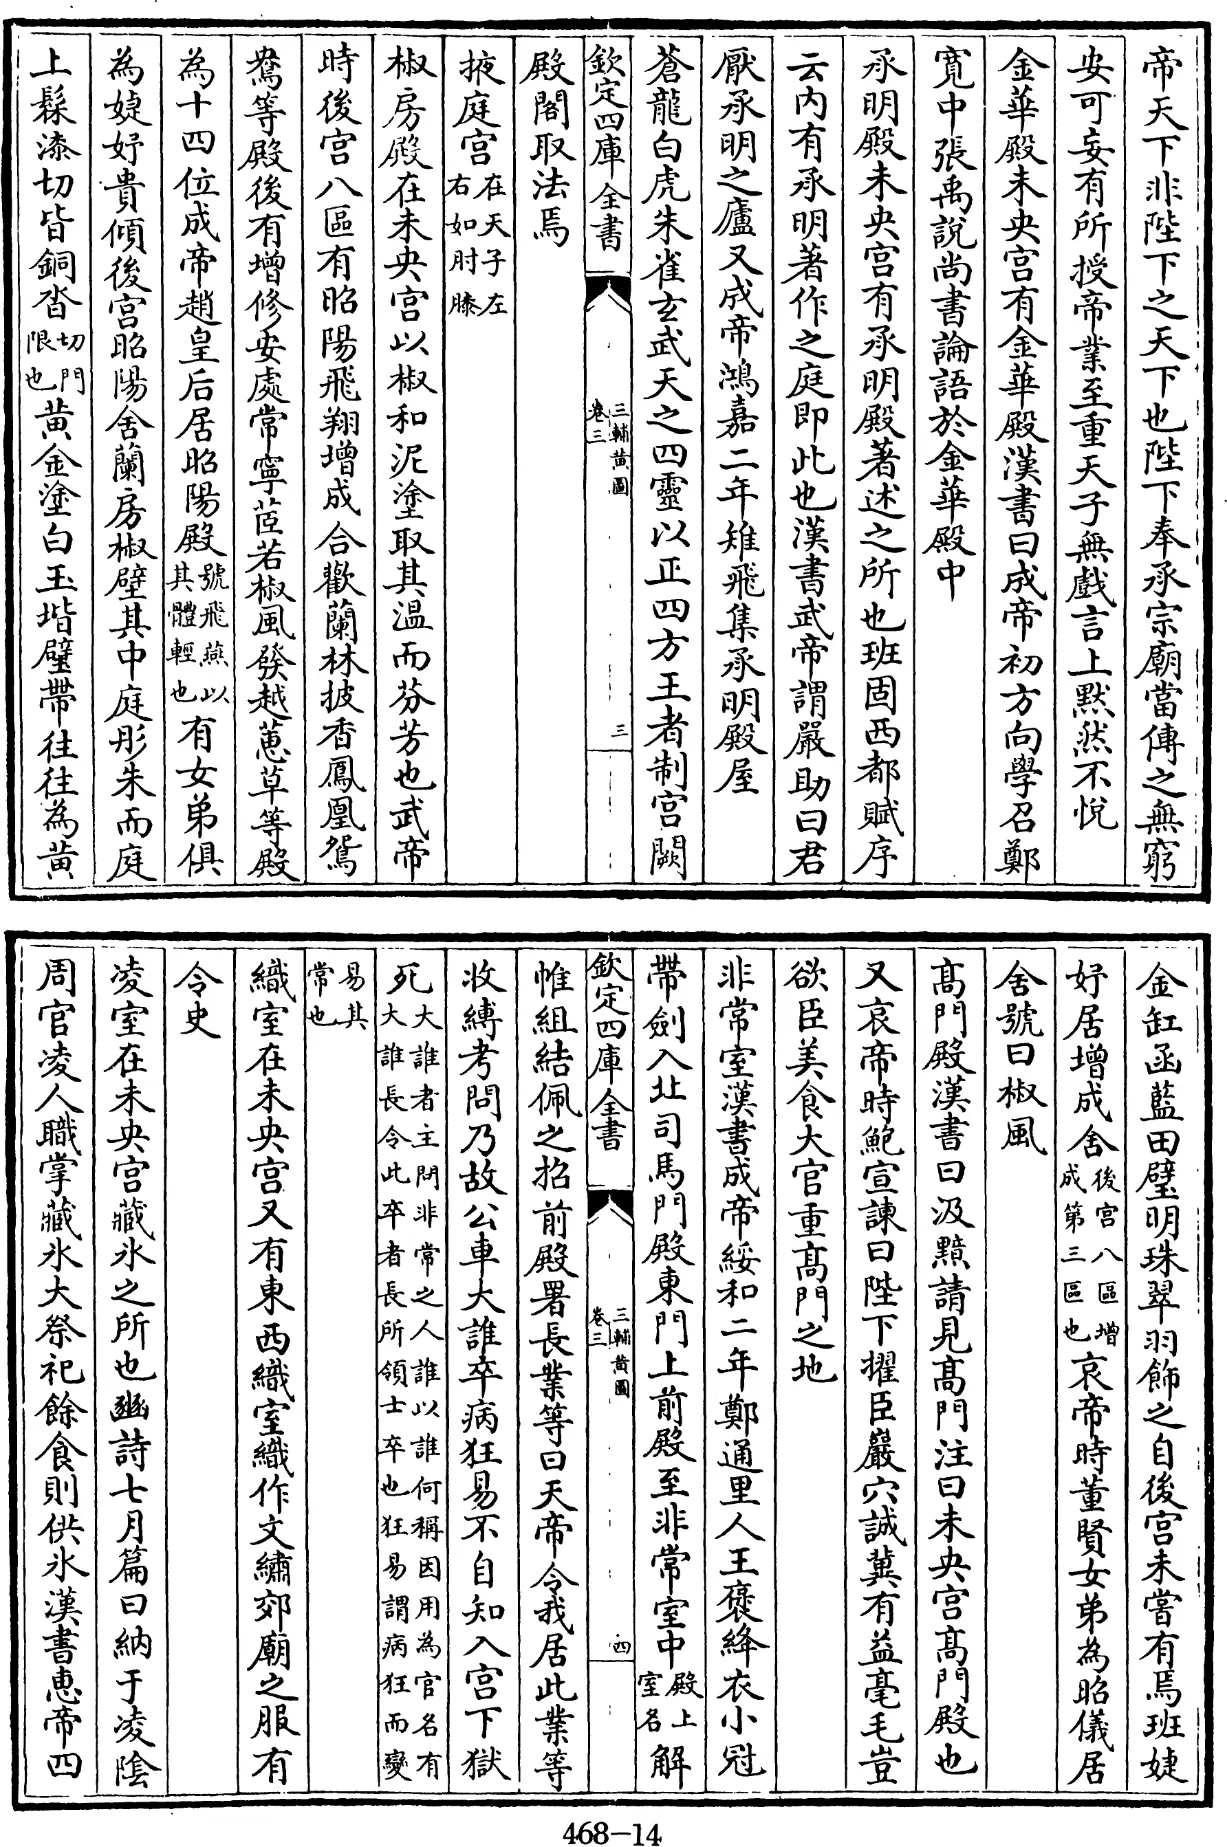 帝天下非陛下之天下也陛下奉承宗廟當傳之無窮
安可妄有所授帝業至重天子無戲言上黙然不悅
金華殿未央宫有金華殿漢書曰成帝初方向學召鄭
寛中張禹説尚書論語於金華殿中
承明殿未央宫有承明殿著述之所也班固西都賦序
云内有承明著作之庭即此也漢書武帝謂嚴助曰君
厭承明之廬又成帝鴻嘉二年雉飛集承明殿屋
蒼龍白虎朱雀玄武天之四靈以正四方王者制宫闕
欽定四庫全書 三輔黄圖 卷三 三
殿閣取法焉
掖庭宫在天子左右如肘膝
椒房殿在未央宫以椒和泥塗取其温而芬芳也武帝
時後宫八區有昭陽飛翔增成合歡蘭林披香鳳凰鴛
鴦等殿後有增修安處常寧茝若椒風發越蕙草等殿
為十四位成帝趙皇后居昭陽殿號飛燕以其體輕也有女弟俱
為婕妤貴傾後宫昭陽舍蘭房椒壁其中庭彤朱而庭
上髹漆切皆銅沓切門限也黄金塗白玉堦壁帶往往為黄
金缸函藍田璧明珠翠羽飾之自後宫未嘗有焉班婕
妤居增成舍後宫八區增成第三區也哀帝時董賢女弟為昭儀居
舍號曰椒風
髙門殿漢書曰汲黯請見髙門注曰未央宫髙門殿也
又哀帝時鮑宣諫曰陛下擢臣巖穴誠冀有益毫毛豈
欲臣美食大官重髙門之地
非常室漢書成帝綏和二年鄭通里人王襃絳衣小冠
帶劍入北司馬門殿東門上前殿至非常室中殿上室名解
欽定四庫全書 三輔黄圖 卷三 四
帷組結佩之招前殿署長業等曰天帝令我居此業等
收縛考問乃故公車大誰卒病狂易不自知入宫下獄
死大誰者主問非常之人誰以誰何稱因用為官名有大誰長令此卒者長所領士卒也狂易謂病狂而變
易其常也
織室在未央宫又有東西織室織作文繡郊廟之服有
令史
凌室在未央宫藏氷之所也豳詩七月篇曰納于凌陰
周官凌人職掌藏氷大祭祀餘食則供氷漢書惠帝四
468-14